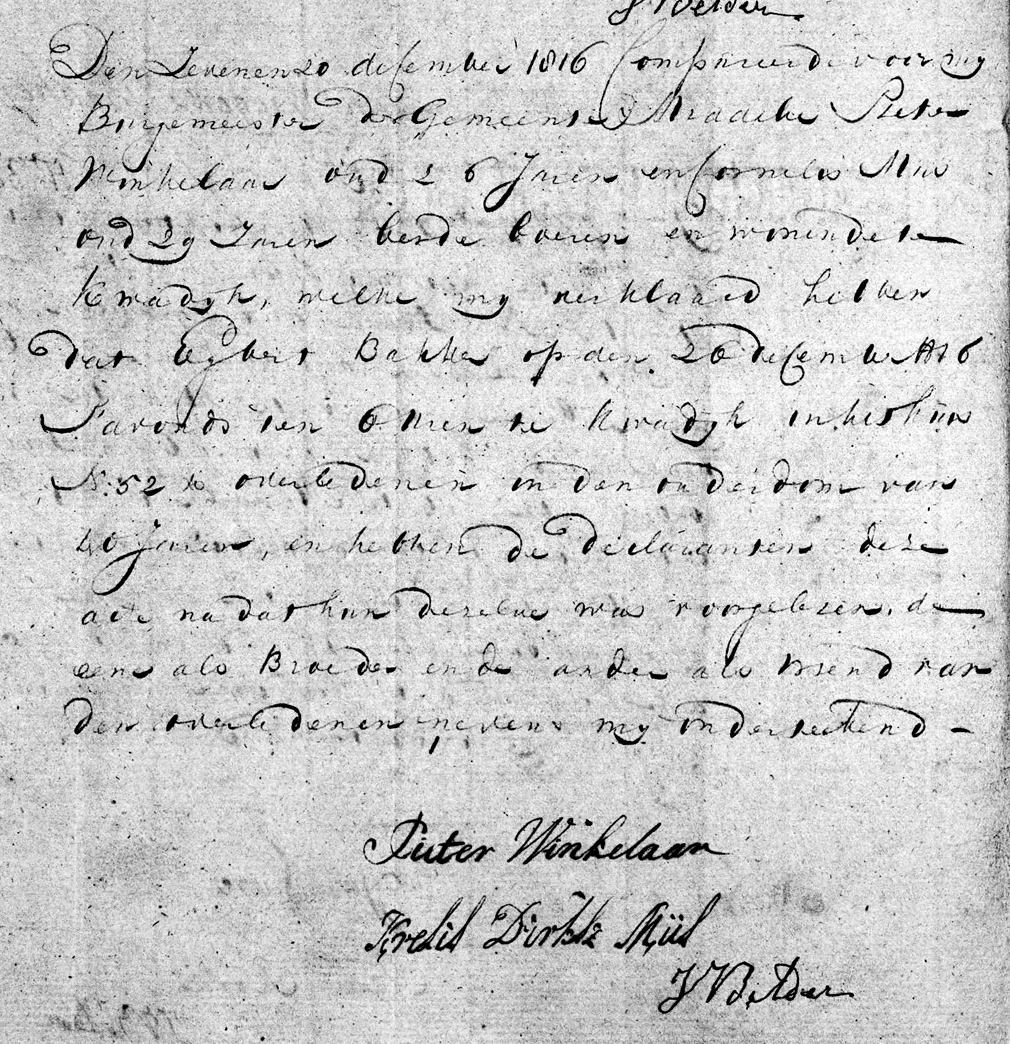 J V Belder
Den Zevenen 20 desember 1816 Compareerde voor my
Burgemeester der Gemeente Pieter
Winkelaar oud 26 Jaren en Cornelis Mus
oud 29 Jaren beide boeren en wonende te
Kwadyk, welke my verklaard hebben
dat Egbert Bakker op den 26 desember 1816
Savonds ten 6 Uren te Kwadyk in het huis
N: 52 is overledenen in den ouderdom van
40 Jaren, en hebben de declaranten deze
acte na dat hun dezelve was voorgelezen, de
eene als Broeder en de ander als vriend van
den overledenen nevens my onderteekend -
Pieter Winkelaar
Krelis Dirksz Mus
J V Belder